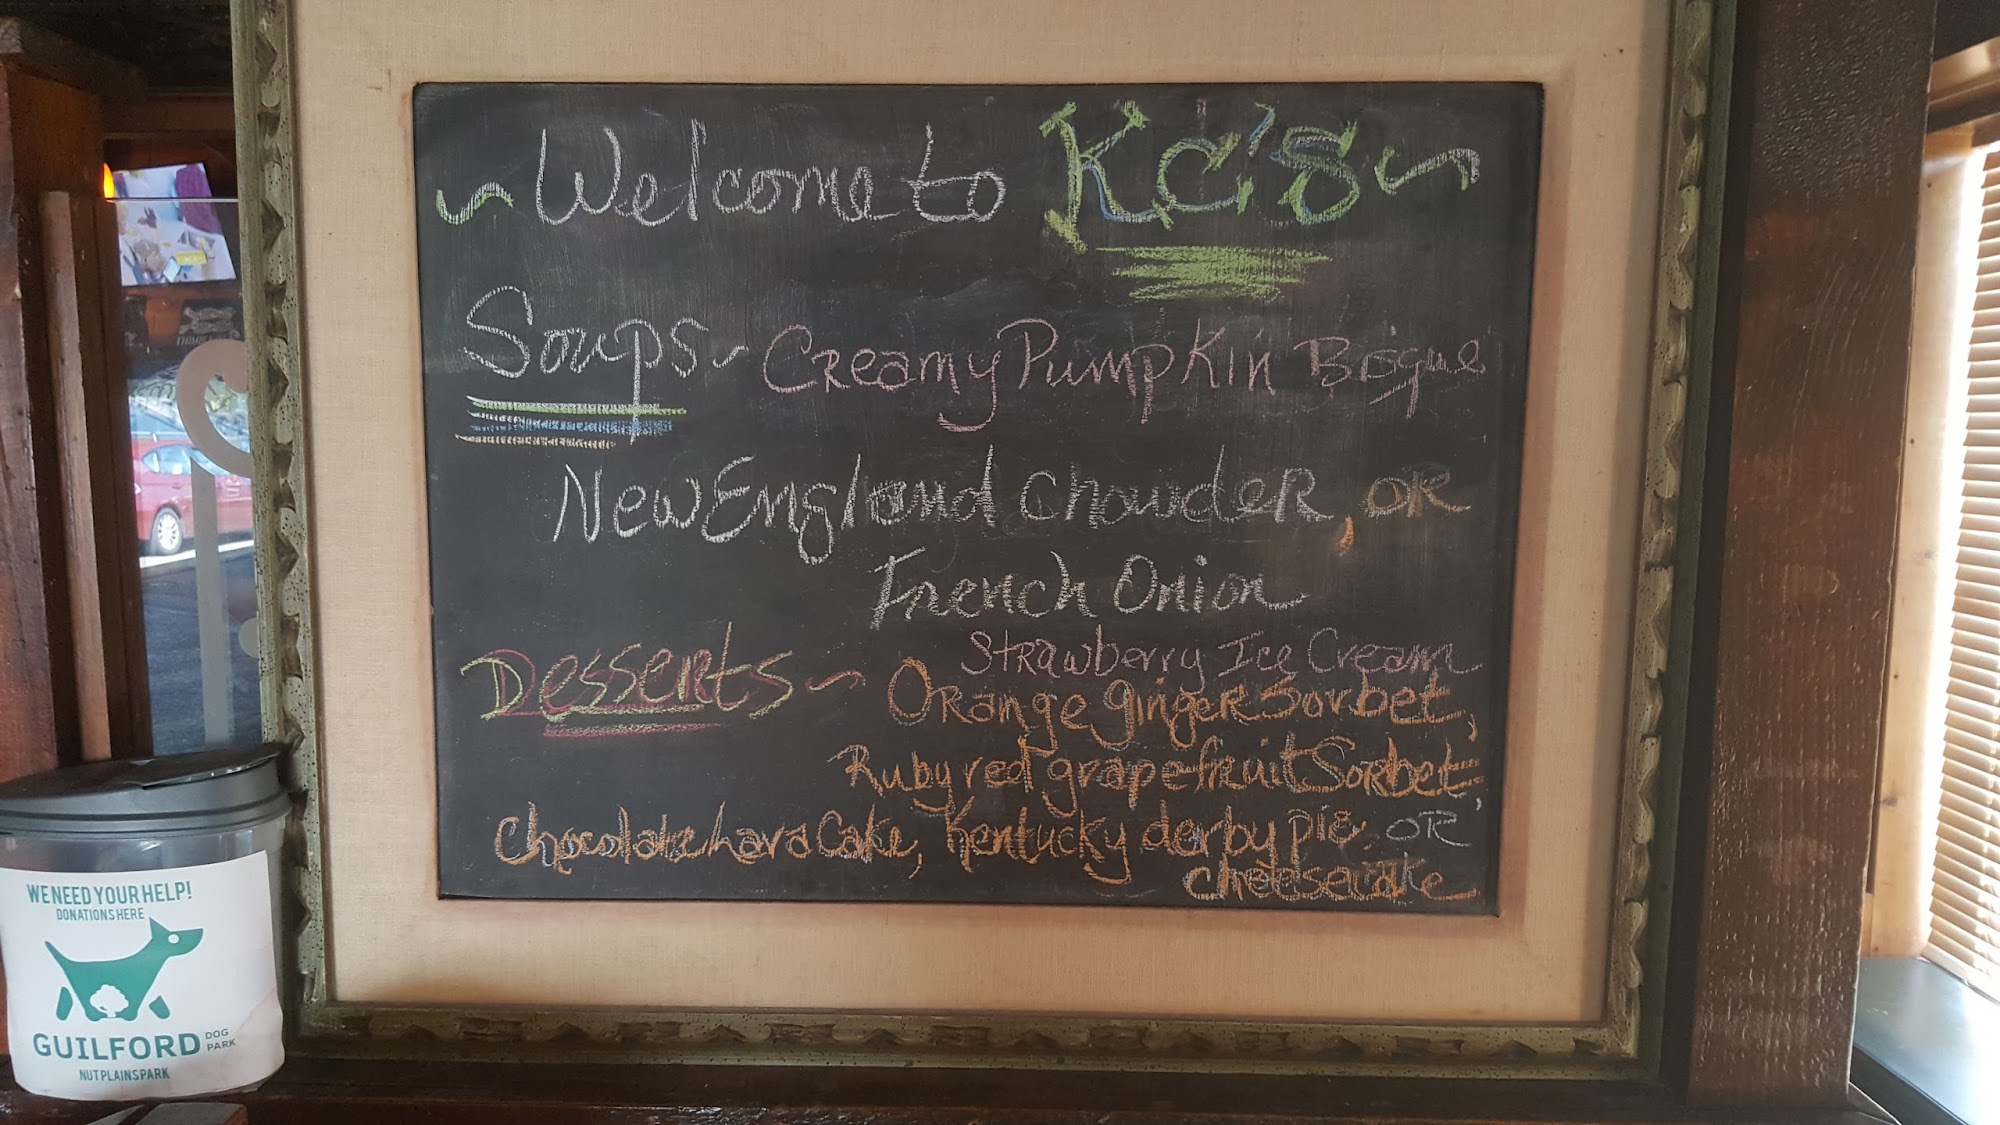 ~ Welcome to KC's ~
Soups ~ Creamy Pumpkin Bisque
New England Chowder, OR
French Onion
Desserts ~ Strawberry Ice Cream
Orange ginger Sorbet,
Ruby red grapefruit Sorbet,
Chocolate Lava Cake, Kentucky derby pie, OR
cheesecake
WE NEED YOUR HELP!
DONATIONS HERE
GUILFORD DOG PARK
NUT PLAINS PARK